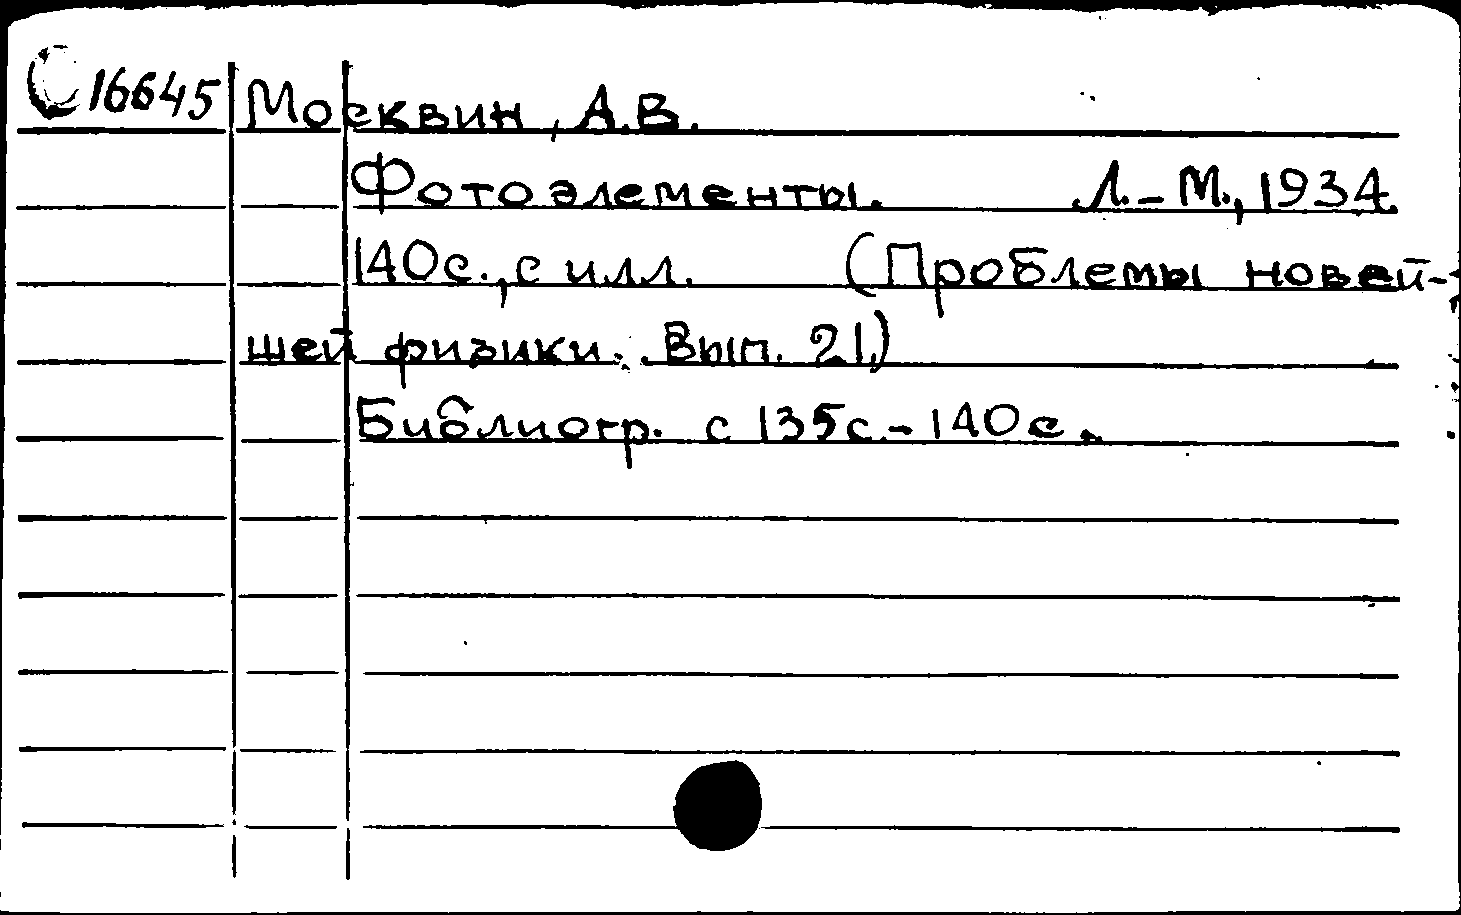 С 16645 Москвин, А.В.
Фотоэлементы. Л.-М., 1934.
140с., с илл. (Проблемы новей-
шей физики. Вып. 21.)
Библиогр. с 135с.-140с.